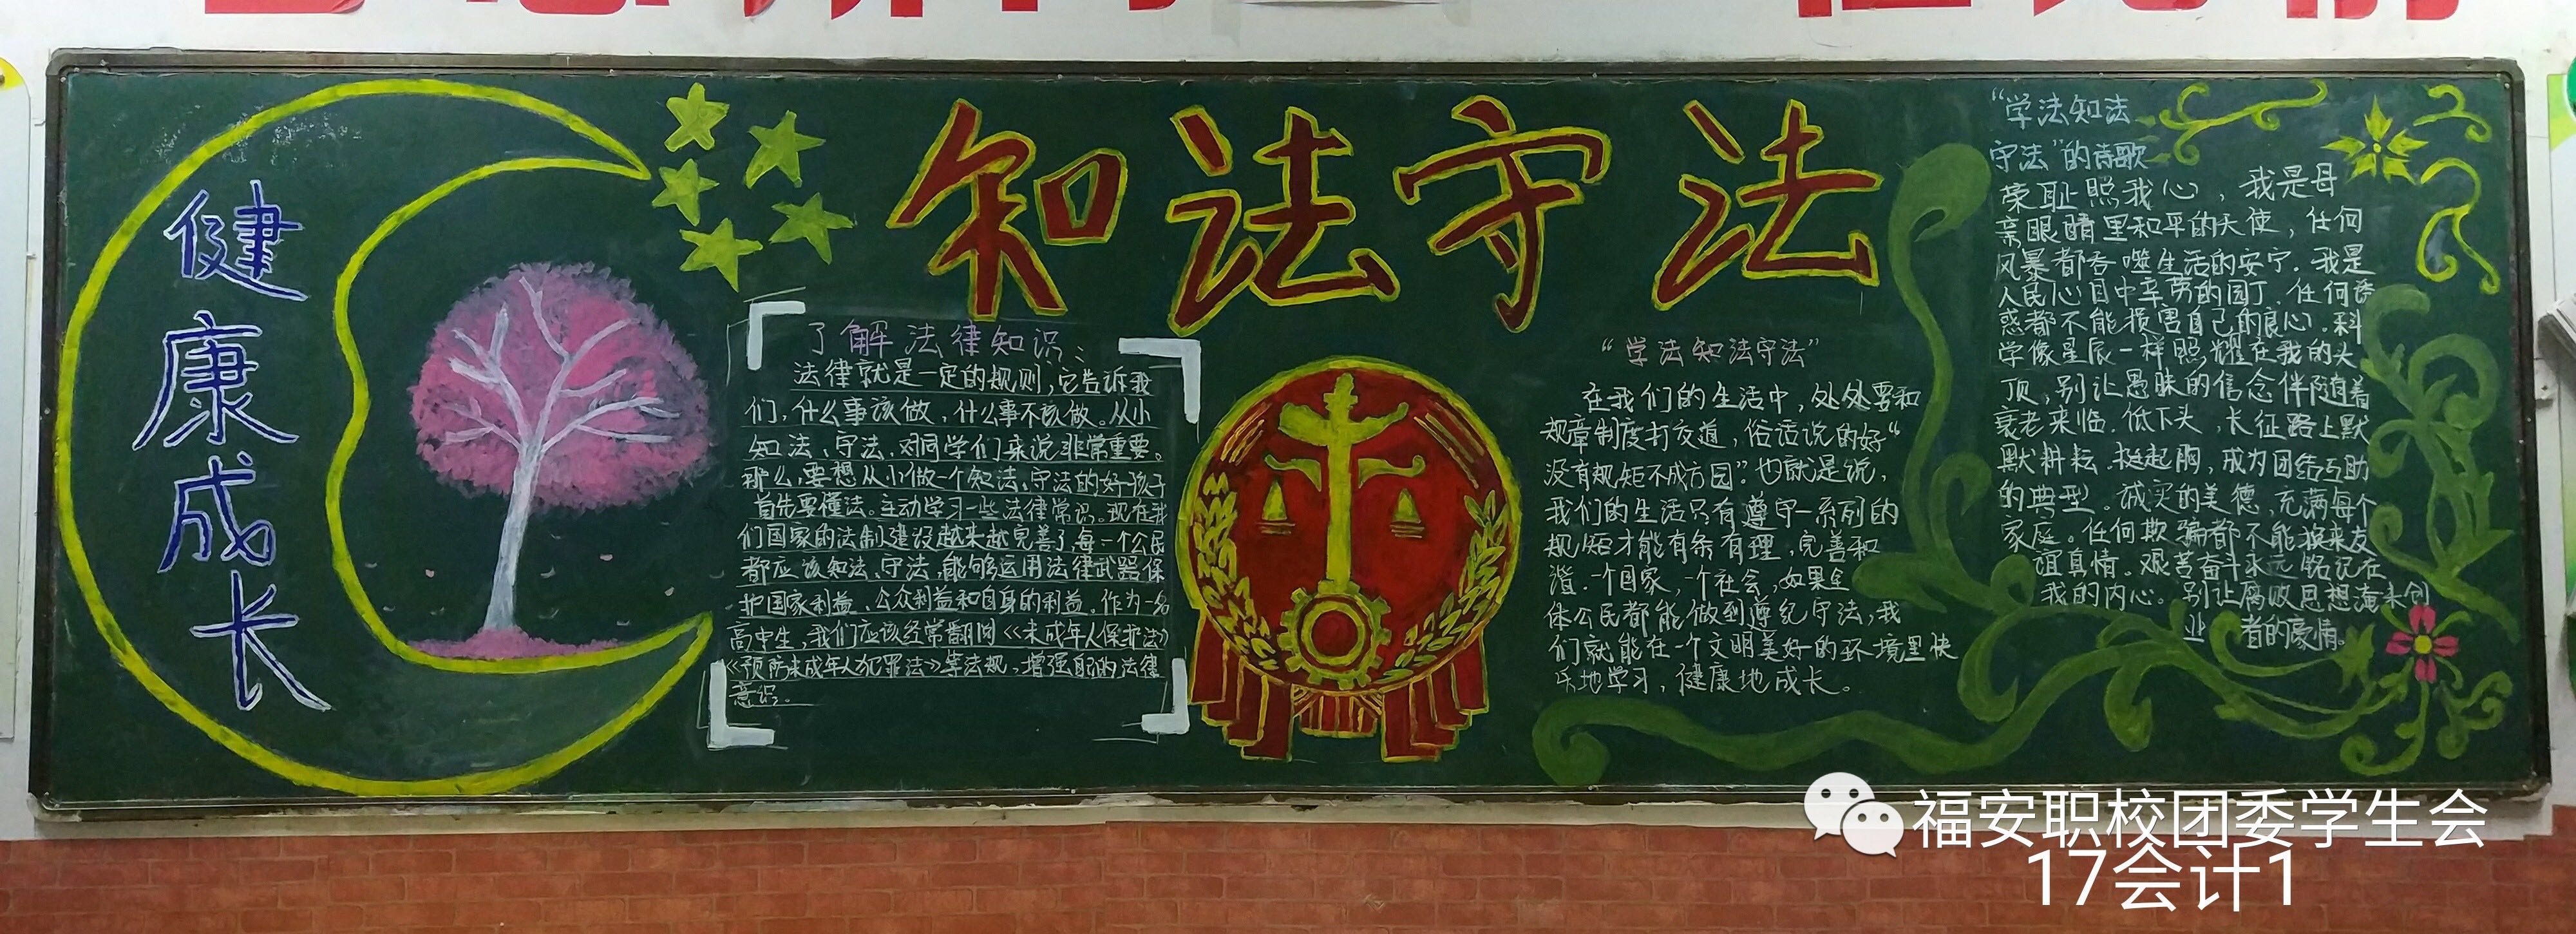 健康成长
知法守法
了解法律知识：
法律就是一定的规则，它告诉我
们，什么事该做，什么事不该做。从小
知法、守法，对同学们来说非常重要。
那么，要想从小做一个知法、守法的好孩子
首先要懂法。主动学习一些法律常识。现在我
们国家的法制建设越来越完善了，每一个公民
都应该知法、守法，能够运用法律武器保
护国家利益、公众利益和自身的利益。作为一名
高中生，我们应该经常翻阅《《未成年人保护法》
《预防未成年人犯罪法》等法规，增强自己的法律
意识。
“学法知法守法”
在我们的生活中，处处要和
规章制度打交道，俗话说的好“
没有规矩不成方园”。也就是说，
我们的生活只有遵守一系列的
规矩才能有条有理，完善和
谐。一个国家，一个社会，如果全
体公民都能做到遵纪守法，我
们就能在一个文明美好的环境里快
乐地学习，健康地成长。
“学法知法
守法”的诗歌
荣耻照我心，我是母
亲眼睛里和平的天使，任何
风暴都吞噬生活的安宁。我是
人民心目中辛劳的园丁，任何诱
惑都不能损害自己的良心。科
学像星辰一样照耀在我的头
顶，别让愚昧的信念伴随着
衰老来临。低下头，长征路上默
默耕耘。挺起胸，成为团结互助
的典型。诚实的美德，充满每个
家庭。任何欺骗都不能换来友
谊真情。艰苦奋斗永远铭记在
我的内心。别让腐败思想淹来创
业者的豪情。
福安职校团委学生会
17会计1